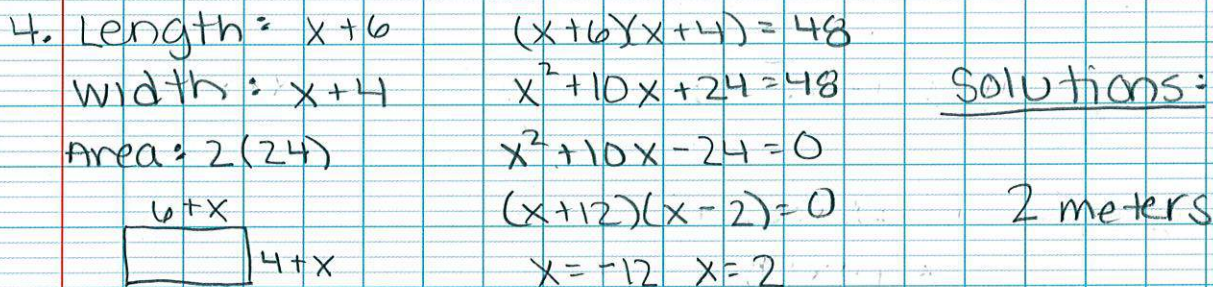 4. Length: x+6
Width: x+4
Area: 2(24)
6+x
4+x
(x+6)(x+4)=48
x²+10x+24=48
x²+10x-24=0
(x+12)(x-2)=0
x=-12 x=2
Solutions:
2 meters